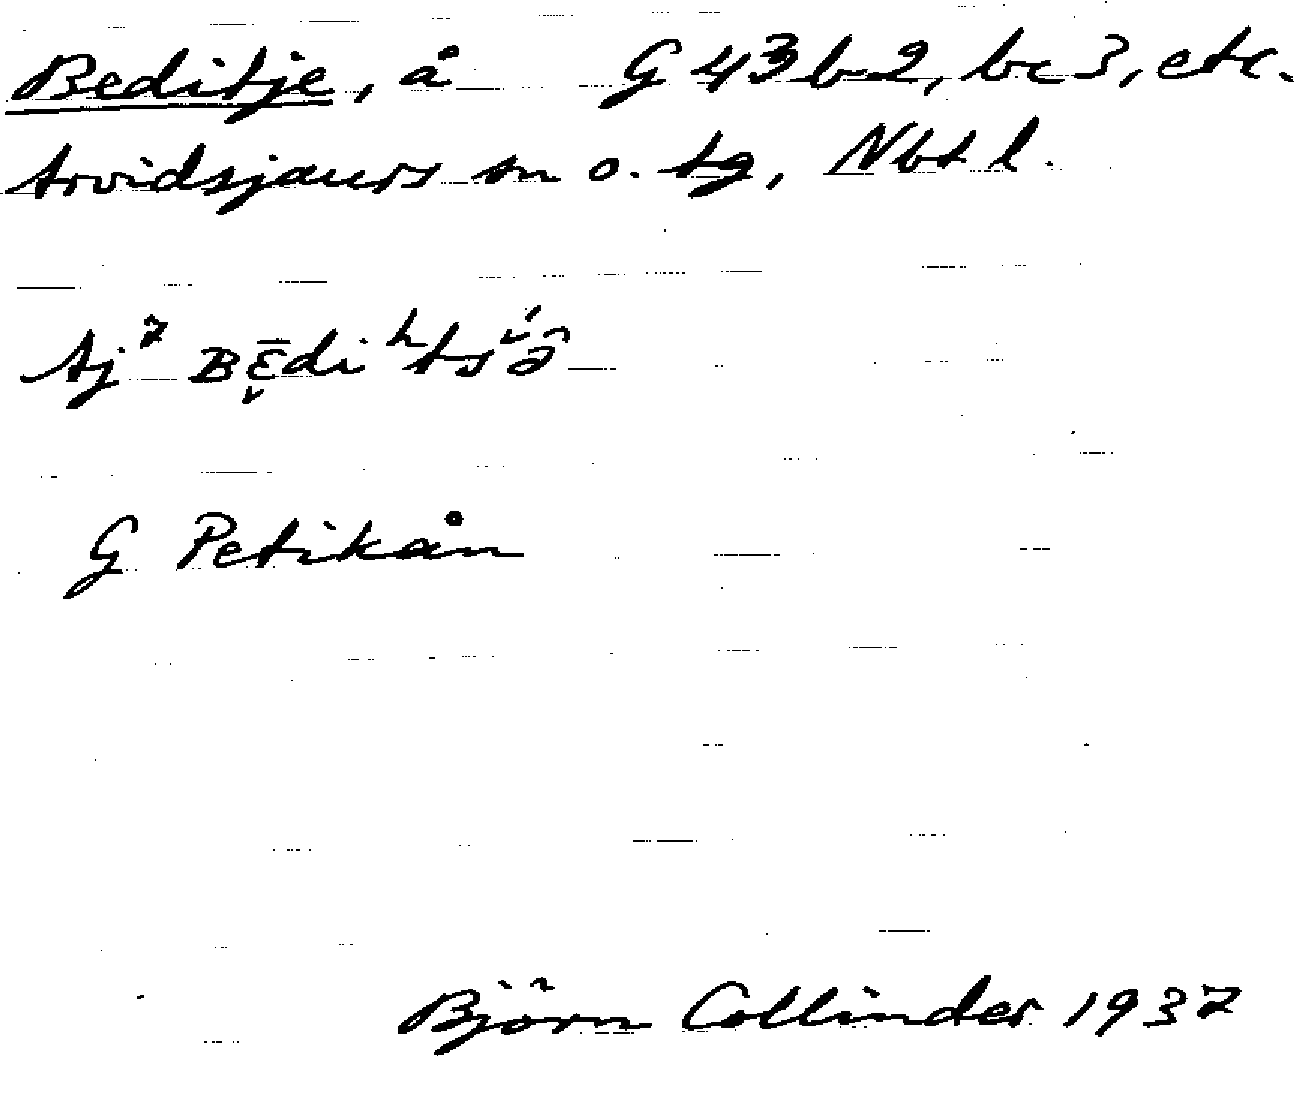 Beditje, å G 43 b 2, bc 3, etc.
Arvidsjaurs sn o. tg, Nbt l.
Aj⁷ ʙɛ̬̄diʰtsᴗ́ə̑
G Petikån
Björn Collinder 1937